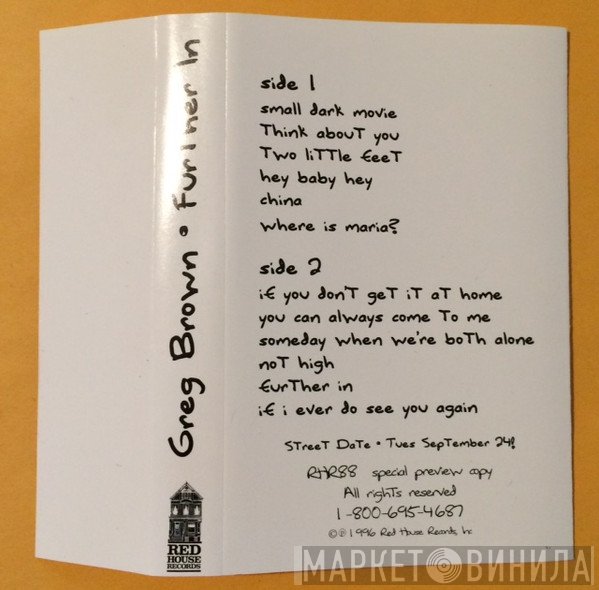 Greg Brown • Further In
RED
HOUSE
RECORDS
side 1
small dark movie
Think abouT you
Two liTTle feeT
hey baby hey
china
where is maria?
side 2
if you don'T geT iT aT home
you can always come To me
someday when we're boTh alone
noT high
furTher in
if i ever do see you again
STreeT DaTe • Tues SepTember 24!
RHR88 special preview copy
All righTs reserved
1-800-695-4687
©℗1996 Red House Records, Inc
МАРКЕТ ВИНИЛА